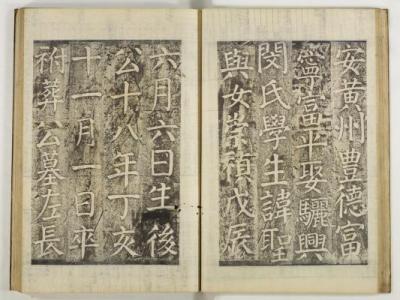 安黃州豊德富
寧富平娶驪興
閔氏學生諱聖
與女崇禎戊辰
六月六日生後
公十八年丁亥
十一月一日卒
祔葬公墓左長